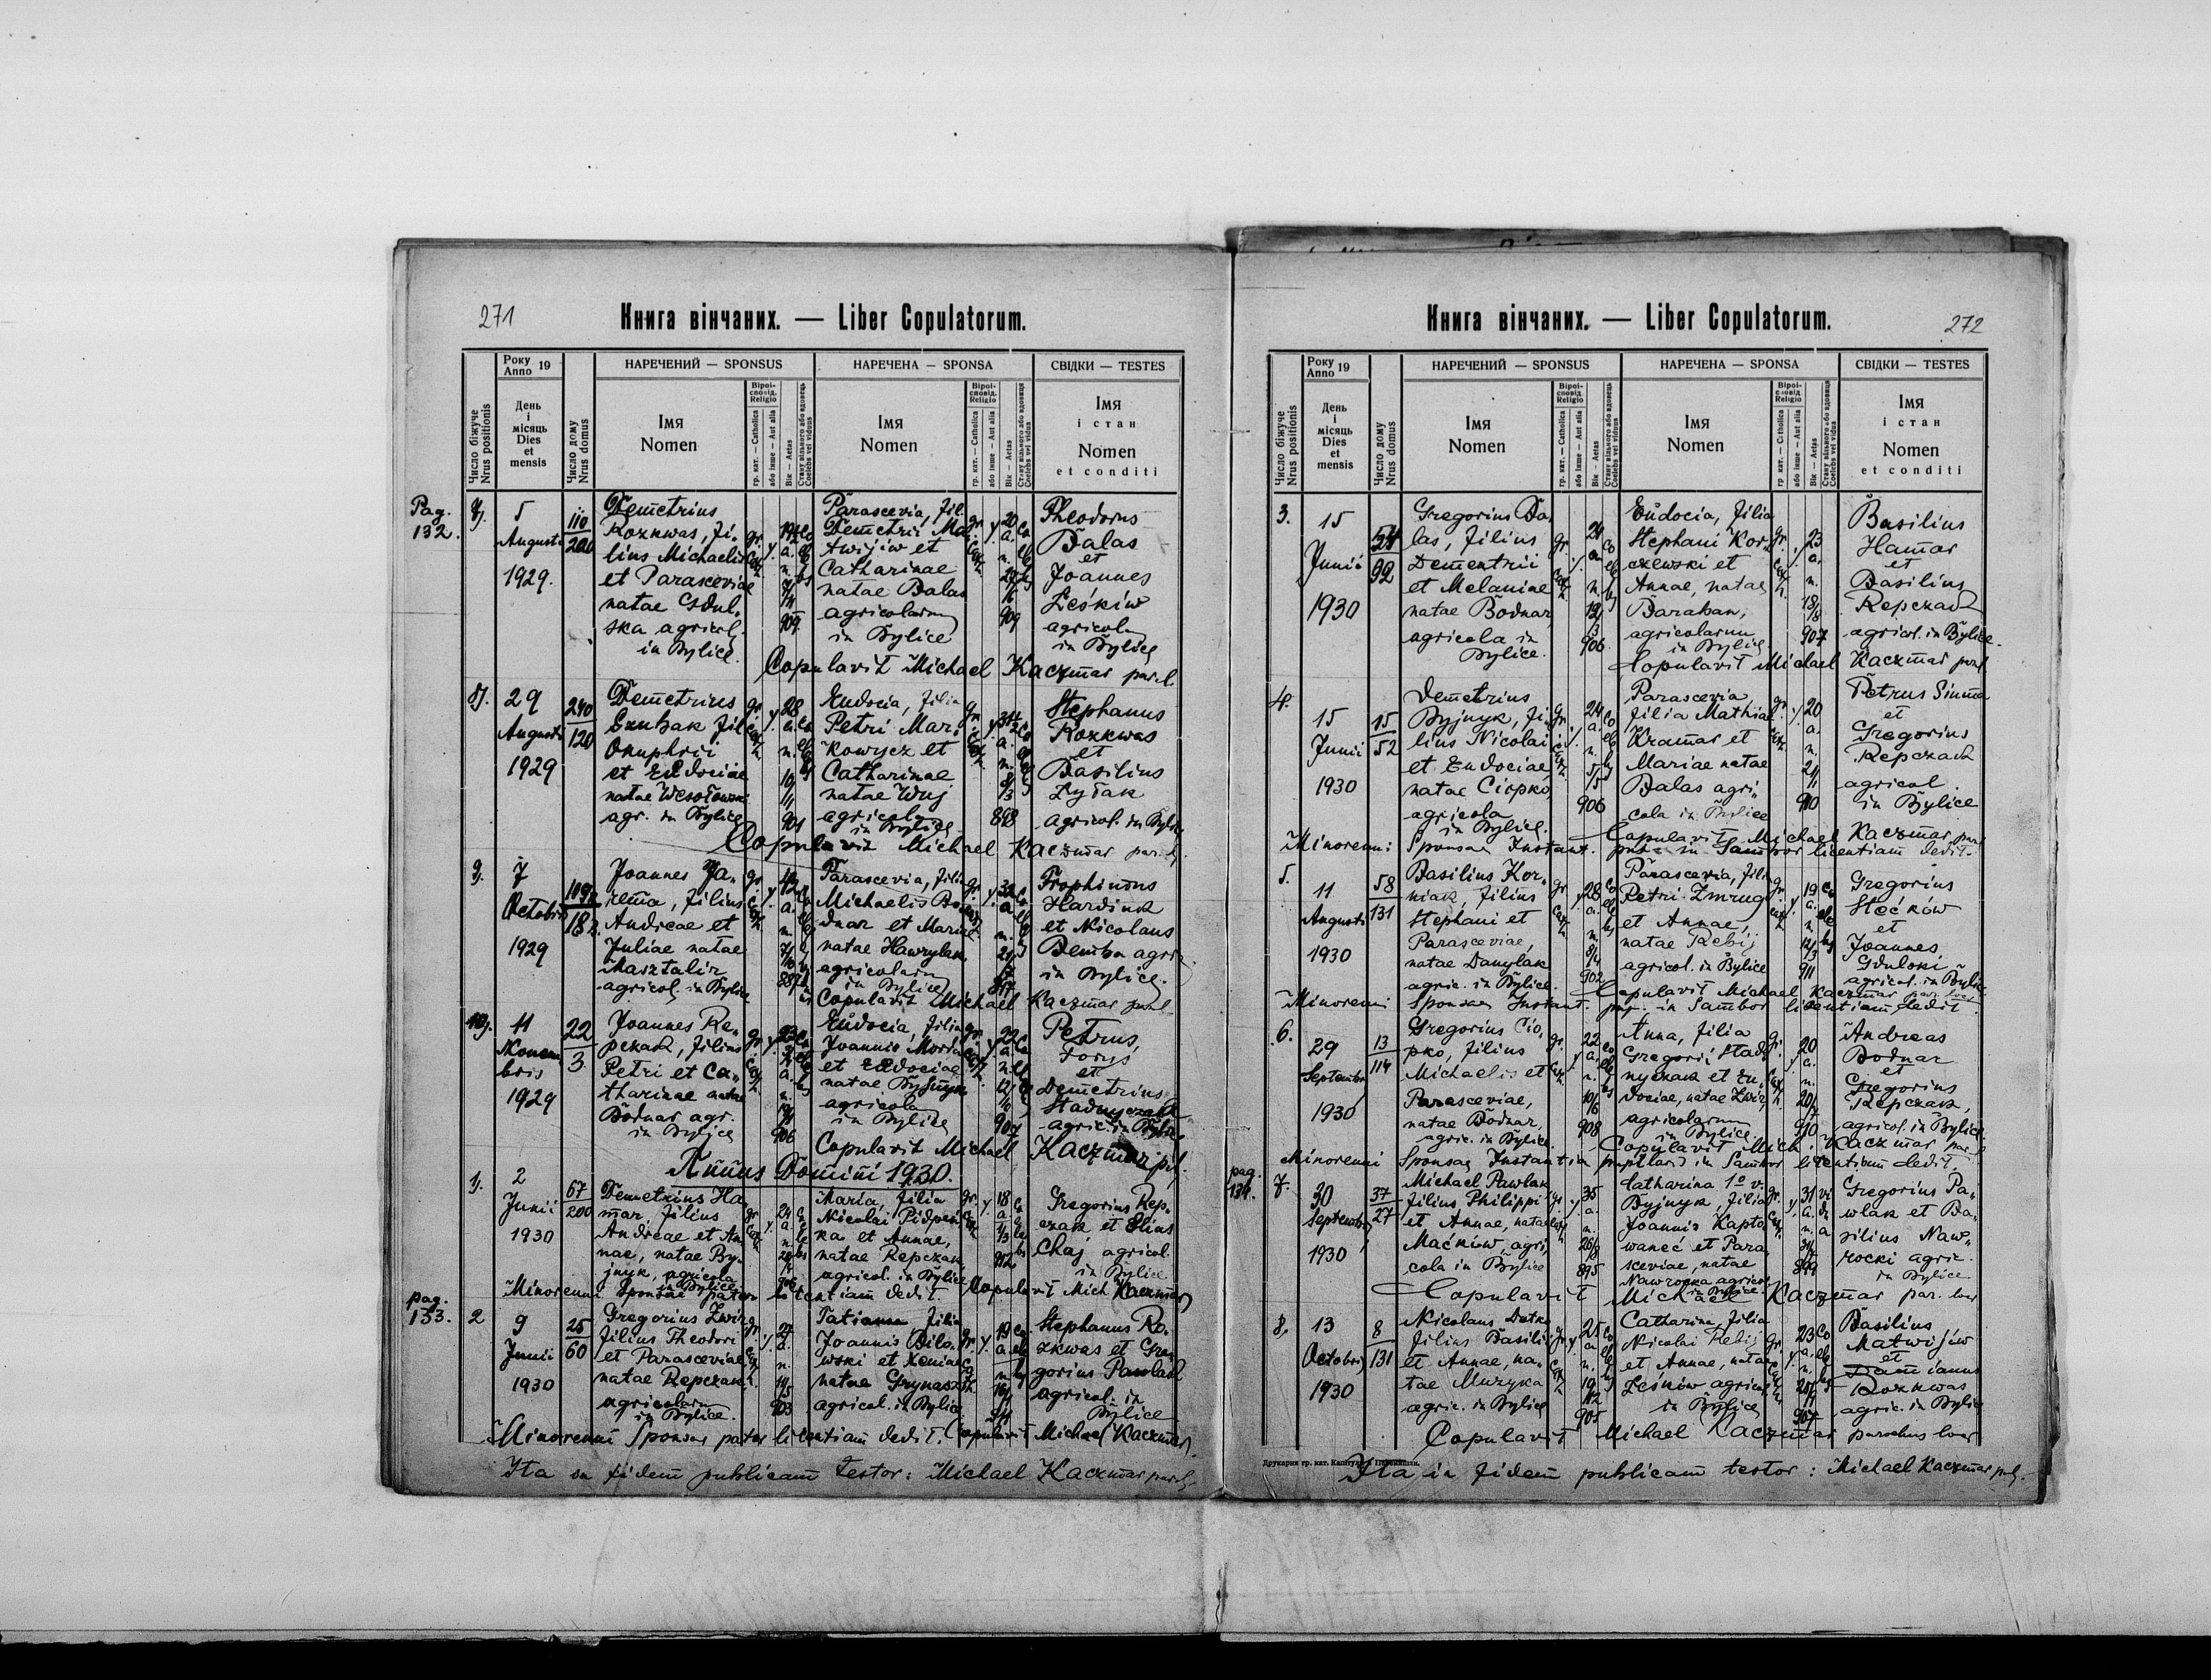 271
Книга вінчаних. — Liber Copulatorum.
Число біжуче Nrus positionis
Року Anno 19
День і місяць Dies et mensis
Число дому Nrus domus
НАРЕЧЕНИЙ — SPONSUS
Імя Nomen
Віроісповід. Religio
гр. кат. — Catholica
або інше — Aut alia
Вік — Aetas
Стану вільного або вдовець Coelebs vel viduus
НАРЕЧЕНА — SPONSA
Імя Nomen
Віроісповід. Religio
гр. кат. — Catholica
або інше — Aut alia
Вік — Aetas
Стану вільного або вдовиця Coelebs vel vidua
СВІДКИ — TESTES
Імя і стан
Nomen et conditi
Pag. 132.
5 Augusti 1929.
110 200
Demetrius
Rozkwas, fi-
lius Michaelis
et Parasceviae
natae Gdul-
ska agricol.
in Bylice.
909
Parascevia, fil.
Demetrii Ma
twijiw et
Catharinae
natae Balas
agricolarum
in Bylice
909
Theodorus
Balas
et
Joannes
Leśkiw
agricola
in Bylice
Copulavit Michael Kaczmar par. l.
8.
29 Augusti 1929
240 120
Demetrius
fil
Onuphrii
et Eudociae
natae Wesołowski
agr. in Bylice
28
10/11 901
Eudocia, filia
Petri Mar-
kowycz et
Catharinae
natae Wuj
agricola
in Bylice
8/3 898
Stephanus
Rozkwas
et
Basilius
Łytak
agricol. in Bylice
Copulavit Michael Kaczmar par. l.
9.
7 Octobris 1929
Joannes Ja-
rema, filius
Andreae et
Juliae natae
Masztalir
agricol. in Bylice
Parascevia, filia
Michaelis Bo
dnar et Mariae
natae Hawrylak
agricolarum
in Bylice
Trophimus
Hardink
et Nicolaus
Bemba agric.
in Bylice.
Copulavit Michael Kaczmar par. l.
10.
11 Novembris 1929
22 3
Joannes Re-
pczak, filius
Petri et Ca-
tharinae natae
Bodnar agr.
in Bylice
906
Eudocia, filia
Joannis
et Eudociae
natae
agricola
in Bylice
907
Petrus
Forys
et
Demetrius
Stadnyczak
agric. in Bylice
Copulavit Michael Kaczmar p.l.
Annus Domini 1930.
1.
2 Junii 1930
67 200
Demetrius Ha
mar, filius
Andreae et An
nae, natae By-
jnyk, agricola
in Bylice
24
Maria filia
Nicolai Pidpes
ka et Annae,
natae Repczak
agricol. in Bylice
18
912
Gregorius Rep-
czak et Elias
Chaj agricol.
in Bylice
Minorenni Sponsae pater licentiam dedit. Copulavit Mich Kaczmar
pag. 133.
2
9 Junii 1930
25 60
Gregorius
filius Theodori
et Parasceviae
natae Repczak
agricolarum
in Bylice.
27
11/5 903
Tatianna filia
Joannis Bilo-
wski et Xeniae
natae Grynasz
agricol. in Bylice
19
911
Stephanus Ro-
zkwas et Gre-
gorius Pawlak
agricol. in
Bylice
Minorenni Sponsae pater licentiam dedit. Copulavit Michael Kaczmar
Ita in fidem publicam testor: Michael Kaczmar par. l.
272
Книга вінчаних. — Liber Copulatorum.
Число біжуче Nrus positionis
Року Anno 19
День і місяць Dies et mensis
Число дому Nrus domus
НАРЕЧЕНИЙ — SPONSUS
Імя Nomen
Віроісповід. Religio
гр. кат. — Catholica
або інше — Aut alia
Вік — Aetas
Стану вільного або вдовець Coelebs vel viduus
НАРЕЧЕНА — SPONSA
Імя Nomen
Віроісповід. Religio
гр. кат. — Catholica
або інше — Aut alia
Вік — Aetas
Стану вільного або вдовиця Coelebs vel vidua
СВІДКИ — TESTES
Імя і стан
Nomen et conditi
3.
15 Junii 1930
54 92
Gregorius Ba
las, filius
Dementrii
et Melaniae
natae Bodnar
agricola in
Bylice.
24
906
Eudocia, filia
Stephani Kor-
czewski et
Annae, natae
Baraban,
agricolarum
in Bylice
23
18/8 907
Basilius
Hamar
et
Basilius
Repczak
agricol. in Bylice.
Copulavit Michael Kaczmar par.l
4.
15 Junii 1930
15 52
Demetrius
Byjnyk, fi-
lius Nicolai
et Eudociae
natae Ciopko
agricola
in Bylice.
24
5/5 906
Parascevia
filia Mathiae
Kramar et
Mariae natae
Balas agri-
cola in Bylice
20
910
Petrus Simma
et
Gregorius
Repczak
agricol
in Bylice
Copulavit Michael Kaczmar par.
Minorenni Sponsae Instant. pup. in Sambor licentiam dedit.
5.
11 Augusti 1930
58 131
Basilius Kor-
niak, filius
Stephani et
Parasceviae,
natae Danylak
agric. in Bylice.
28
902
Parascevia, filia
Petri Zmrug
et Annae,
natae Rebij
agricol. in Bylice
19
911
Gregorius
Stećków
et
Joannes
Gdulski
agricol. in Bylice
Copulavit Michael Kaczmar par. loci
Minorenni Sponsae Instant. pup. in Sambor licentiam dedit.
6.
29 Septembris 1930
13 114
Gregorius Cio-
pko, filius
Michaelis et
Parasceviae,
natae Bodnar,
agric. in Bylice.
22
10/6 908
Anna, filia
Gregorii Stad
nyczak et Eu-
dociae, natae
agricolarum
in Bylice
20
20/7 910
Andreas
Bodnar
et
Gregorius
Repczak,
agricol. in Bylice
Copulavit Mich. Kaczmar par. l
Minorenni Sponsae Instantia pupillar. in Sambor licentiam dedit.
pag. 134.
7.
30 Septembris 1930
37 27
Michael Pawlak
filius Philippi
et Annae, natae
Maćkiw agri-
cola in Bylice
35
26/8 895
Catharina 1º v.
Byjnyk, filia
Joannis Kapto
waneć et Para
sceviae, natae
Nawrocka agricol.
in Bylice
31
899
Gregorius Pa-
wlak et Ba-
silius Naw-
rocki agric.
in Bylice
Copulavit Michael Kaczmar par. loci
8.
13 Octobris 1930
8 131
Nicolaus
filius Basilii
et Annae, na-
tae Muzyka
agric. in Bylice
25
19/12 905
Catharina, filia
Nicolai Rebij
et Annae, natae
Leśkiw agricol.
in Bylice
23
907
Basilius
Matwijów
et
Damianus
Rozkwas
agric. in Bylice
Copulavit Michael Kaczmar parochus loci
Друкарня гр. кат. Капітули в Перемишли.
Ita in fidem publicam testor: Michael Kaczmar p.l.